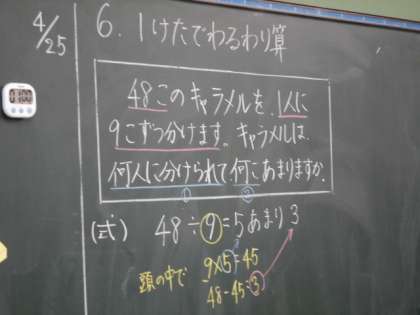 4/25
6. 1けたでわるわり算
48このキャラメルを、1人に
9こずつ分けます。キャラメルは、
何人に分けられて何こあまりますか。
① ②
(式) 48÷9=5あまり3
頭の中で 9×5=45
48-45=3